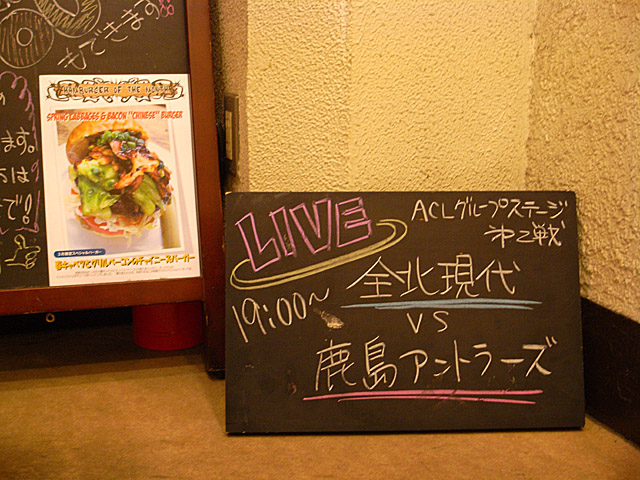 きできます
ます。
は
で!!
HAMBURGER OF THE MONTH
SPRING CABBAGES & BACON "CHINESE" BURGER
3月限定スペシャルバーガー
春キャベツとグリルベーコンのチャイニーズバーガー
LIVE
ACLグループステージ
第2戦
19:00〜
全北現代
VS
鹿島アントラーズ